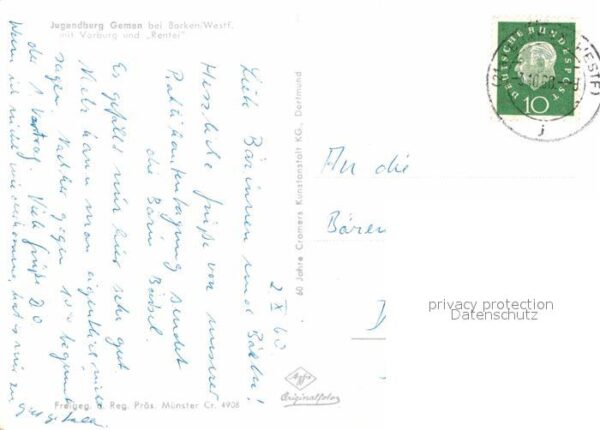 Jugendburg Gemen bei Borken/Westf.
mit Vorburg und „Rentei"
2 X 60.
Liebe Bärinnen und Bären!
Herzliche Grüße von unserer
Praktikantentagung sendet
die Bärin Bärbel.
Es gefällt mir hier sehr gut
Viel kann man eigentlich nicht
sagen. Nachher gegen 10⁰⁰ beginnt
der 1 Vortrag. Viele Grüße
Wenn ich nicht wiederkomme, hat's mir zu
gut gefallen.
Freigeg. d. Reg. Präs. Münster Cr. 4908
60 Jahre Cramers Kunstanstalt KG., Dortmund
Agfa
Originalfoto
DEUTSCHE BUNDESPOST
10
(WESTF)
(21
j
An die
Bären
privacy protection
Datenschutz